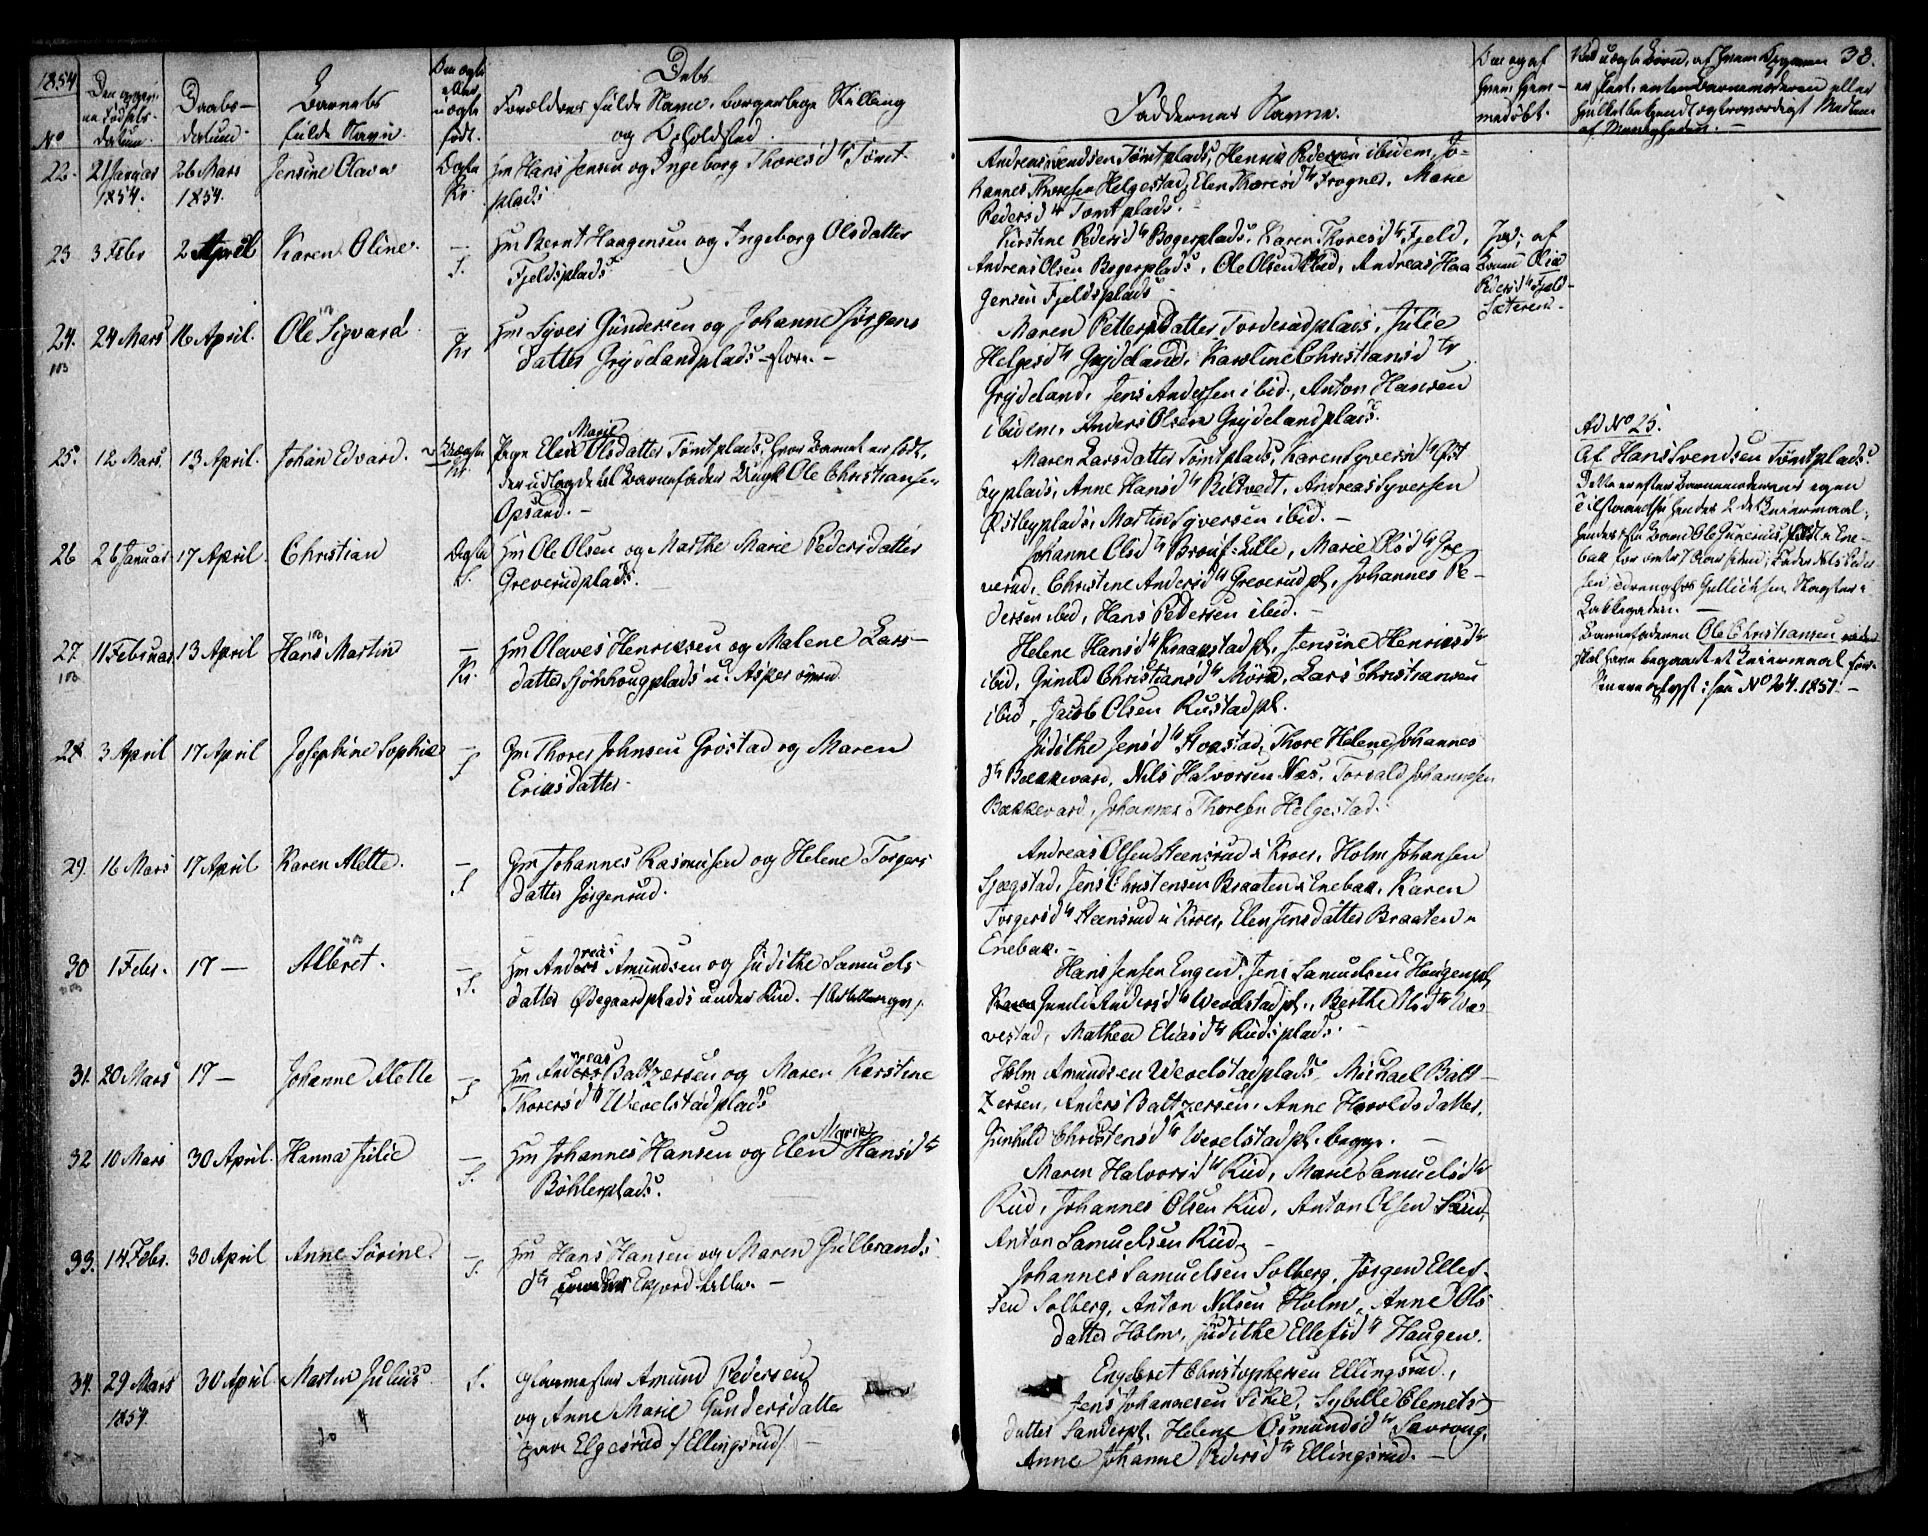 1854
No
Den opgivne Fødsels-datum.
Daabs-datum.
Barnets fulde Navn.
Om ægte eller uægte født.
Dets Forældres fulde Navne, borgerlige Stilling og Opholdsted.
Faddernes Navne.
Om og af hvem hjemmedøbt.
38.
22. 21 Januar 1854. 26 Mars 1854. Jensine Olava Ægte Kr.
Gm Hans Jensen og Ingeborg Thoresdtr Tomt-
plads
Andreas Svendsen Tømtplads, Henrik Pedersen ibidem, Jo-
hannes Thoresen Helgestad, Elen Thoresdtr Frogner, Marie
Pedersdtr Tomtplads.
23 3 Febr 2 April Karen Oline. — S.
Gm Bernt Haagensen og Ingeborg Olsdatter
Fjeldsplads
Kirstine Pedersdtr Bogerplads, Karen Thoresdtr Fjeld,
Andreas Olsen Bogerplads, Ole Olsen, Andreas Haa
gensen Fjeldsplads
Jod: af
Olia
Pedersdtr Fjeld-
Sæteren.
24. 24 Mars 16 April. Ole Sigvard Kr
Gm Syver Gundersen og Johanne Jørgens
datter Grydelandplads
Maren Pettersdatter Torderudplads, Julie
Helgesdtr Grydeland, Karoline Christiansdtr
Grydeland, Jens Andersen ibid., Anton Hansen
ibidem, Anders Olsen Grydelandplads.
25. 12 Mars. 13 April. Johan Edvard. Uægte Kr.
Pige Eline Marie Olsdatter Tømtplads, hvor Barnet er født,
der udlagde til Barnefader Ungk Ole Christiansen
Opsand. —
Maren Larsdatter Tømtplads, Karen Syversdtr Øst
byplads, Anne Hansdtr Riltvedt, Andreas Syversen
Østbyplads, Martin Syversen ibid. —
Ad No 25.
Af Hans Svendsen Tømtplads.
Dette er efter Barnemoderens egen
Tilstaaelse hendes 2det Leiermaal,
Barnefaderen Ole Christiansen
skal have begaaet et Leiermaal før.
see No 24. 1851. —
26 26 Januar 17 April Christian Ægte S.
Gm Ole Olsen og Marthe Marie Pedersdatter
Greverudplads.
Johanne Olsdtr Lille, Marie Olsdtr Gre
verud, Christine Andersdtr Greverudpl, Johannes Pe-
dersen ibid, Hans Pedersen ibid. —
27 11 Februar 13 April Hans Martin — Kr.
Gm Olaves Henriksen og Malene Lars-
datter
Helene Hansdtr Kraakstadpl, Jensine Henriksdtr
ibid, Gunild Christiansdtr Mørk, Lars Christiansen
ibid, Jacob Olsen Rustadpl.
28 3 April 17 April Josephine Sophie — S
Gm Thorer Johnsen Grøstad og Maren
Eriksdatter
Judithe Jensdtr Hvastad, Thore Helene Johannes
dtr Bækkevard, Nils Halvorsen Næs, Torvald Johannesen
Bækkevard, Johannes Thoresen Helgestad.
29. 16 Mars 17 April Karen Alette. — S
Gm Johannes Rasmusen og Helene Torgers
datter Jørgenrud.
Andreas Olsen Steensrud i Kroer, Holm Johansen
Sjægstad, Jens Christensen Braaten i Enebak, Karen
Torgersdtr Steensrud i Kroer, Elen Jensdatter Braaten i
Enebak. —
30 1 Febr. 17 — Albret. — S.
Gm Andreas Amundsen og Judithe Samuels-
datter Ødegaardplads under Rud.
Hans Jensen Engen, Jens Samuelsen Haugenpl,
Gunild Andersdtr Wevelstadpl., Berthe Olsdtr We-
velstad, Mathea Eliasdtr Rudsplads. —
31. 20 Mars 17 — Johanne Alette — S
Gm Andreas Baltzersen og Maren Kirstine
Thorersdtr Wevelstadplads
Holm Amundsen Wevelstadplads, Michael Balt-
zersen, Anders Baltzersen, Anne Haroldsdatter,
Gunhild Christensdtr Wevelstadpl. begge. —
32 10 Mars 30 April. Hanna Julie — S.
Gm Johannes Hansen og Elen Marie Hansdtr
Bøhlerplads.
Maren Halvorsdtr Rud, Marie Samuelsdtr
Rud, Johannes Olsen Rud, Anton Olsen Rud,
Anton Samuelsen Rud. —
33. 14 Febr. 30 April Anne Sørine. — S.
Gm Hans Hansen og Maren Gulbrands
dtr Ekjord —
Johannes Samuelsen Solberg, Jørgen Ellef-
sen Solberg, Anton Nilsen Holm, Anne Ols
datter Holm, Judithe Ellefsdtr Haugen.
34. 29 Mars 1854 30 April Martin Julius S.
Glarmester Amund Pedersen
og Anne Marie Gundersdatter
paa Elgesrud /:Ellingsrud:/ —
Engebret Christophersen Ellingsrud,
Jens Johannesen Schie, Sybille Clemets
datter Sanderpl, Helene Osmundsdtr Savroug,
Anne Johanne Pedersdtr Ellingsrud. —